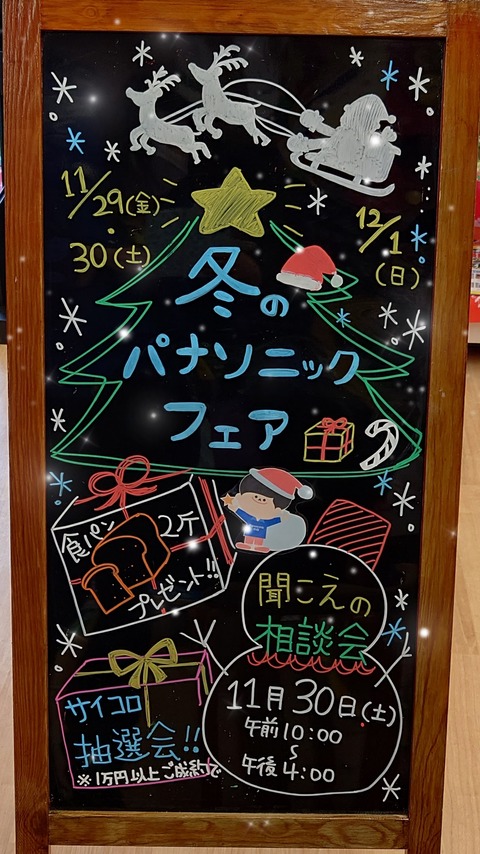 11/29(金)
・
30(土)
12/1
(日)
冬の
パナソニック
フェア
食パン 2斤
プレゼント!!
聞こえの
相談会
11月30日(土)
午前10:00
~
午後4:00
サイコロ
抽選会!!
※1万円以上ご成約で